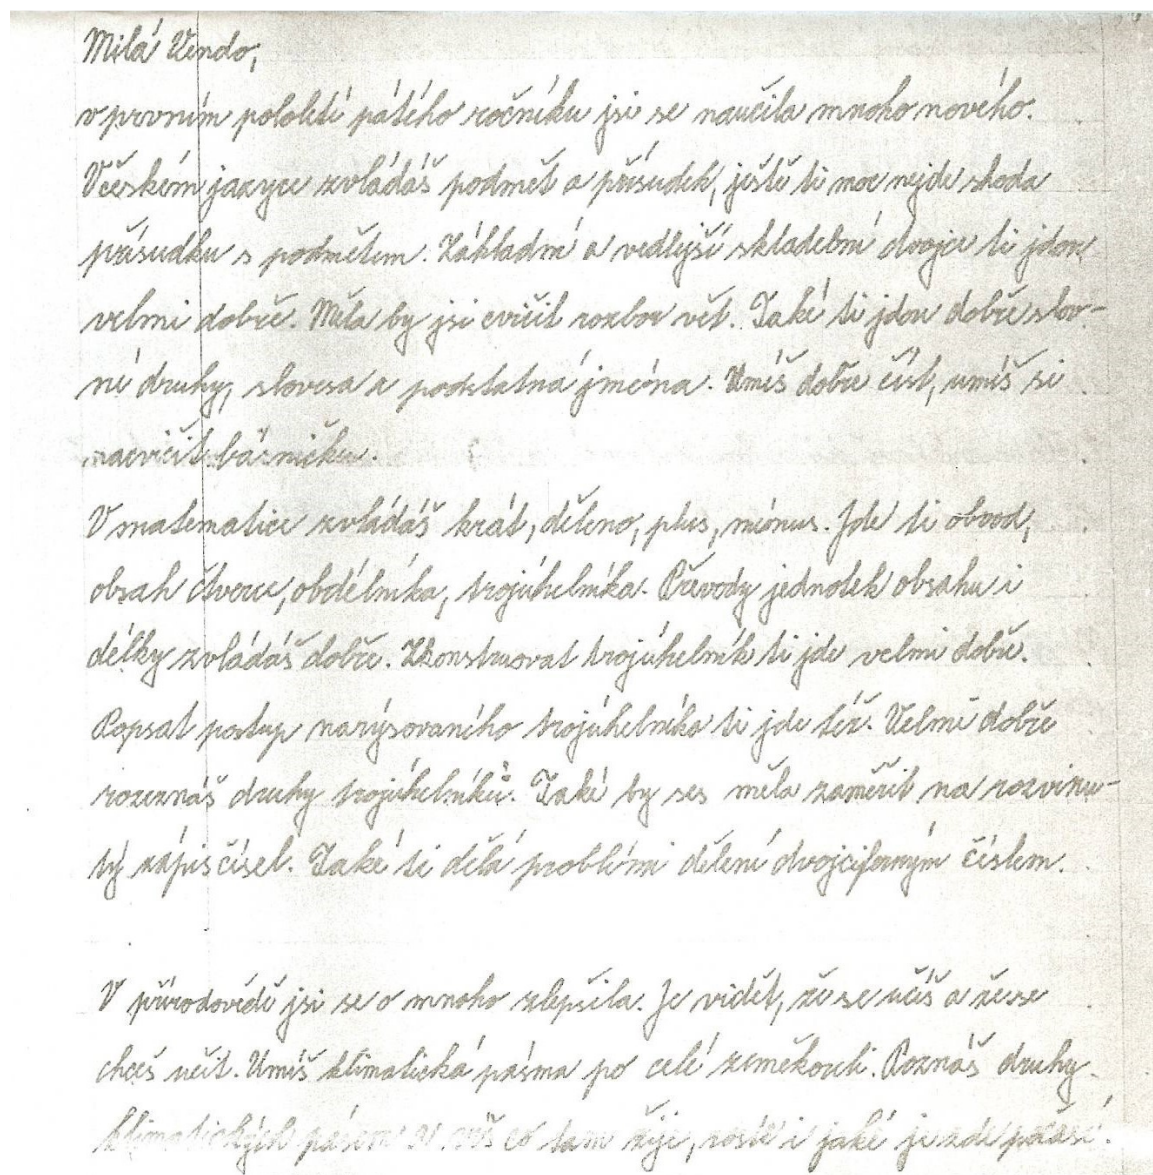 Milá Vendo,
v prvním pololetí pátého ročníku jsi se naučila mnoho nového.
V českém jazyce zvládáš podmět a přísudek, ještě ti moc nejde shoda
přísudku s podmětem. Základní a vedlejší skladební dvojce ti jdou
velmi dobře. Měla by jsi cvičit rozbor vět. Také ti jdou dobře slov-
ní druhy, slovesa a podstatná jména. Umíš dobře číst, umíš si
nacvičit básničku.
V matematice zvládáš krát, děleno, plus, mínus. Jde ti obvod,
obsah čtverce, obdélníka, trojúhelníka. Převody jednotek obsahu i
délky zvládáš dobře. Zkonstruovat trojúhelník ti jde velmi dobře.
Popsat postup narýsovaného trojúhelníka ti jde též. Velmi dobře
rozeznáš druhy trojúhelníků. Také by ses měla zaměřit na rozvinu-
tý zápis čísel. Také ti dělá problémi dělení dvojciferným číslem.
V přírodovědě jsi se o mnoho zlepšila. Je vidět, že se učíš a že se
chceš učit. Umíš klimatická pásma po celé zeměkouli. Poznáš druhy
klimatických pásem a víš co tam žije, roste i jaké je zde počasí.